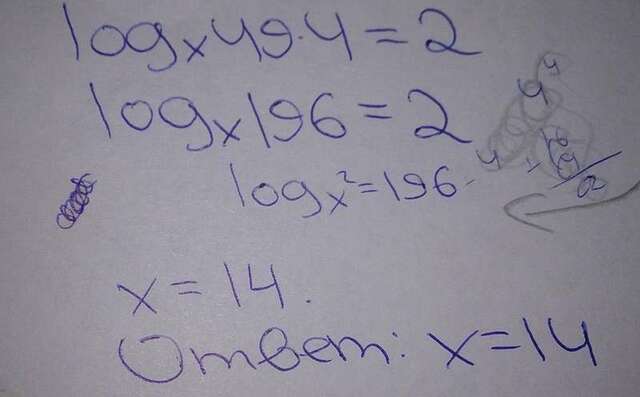 logₓ49·4=2
logₓ196=2
logₓ²=196
x=14.
Ответ: x=14